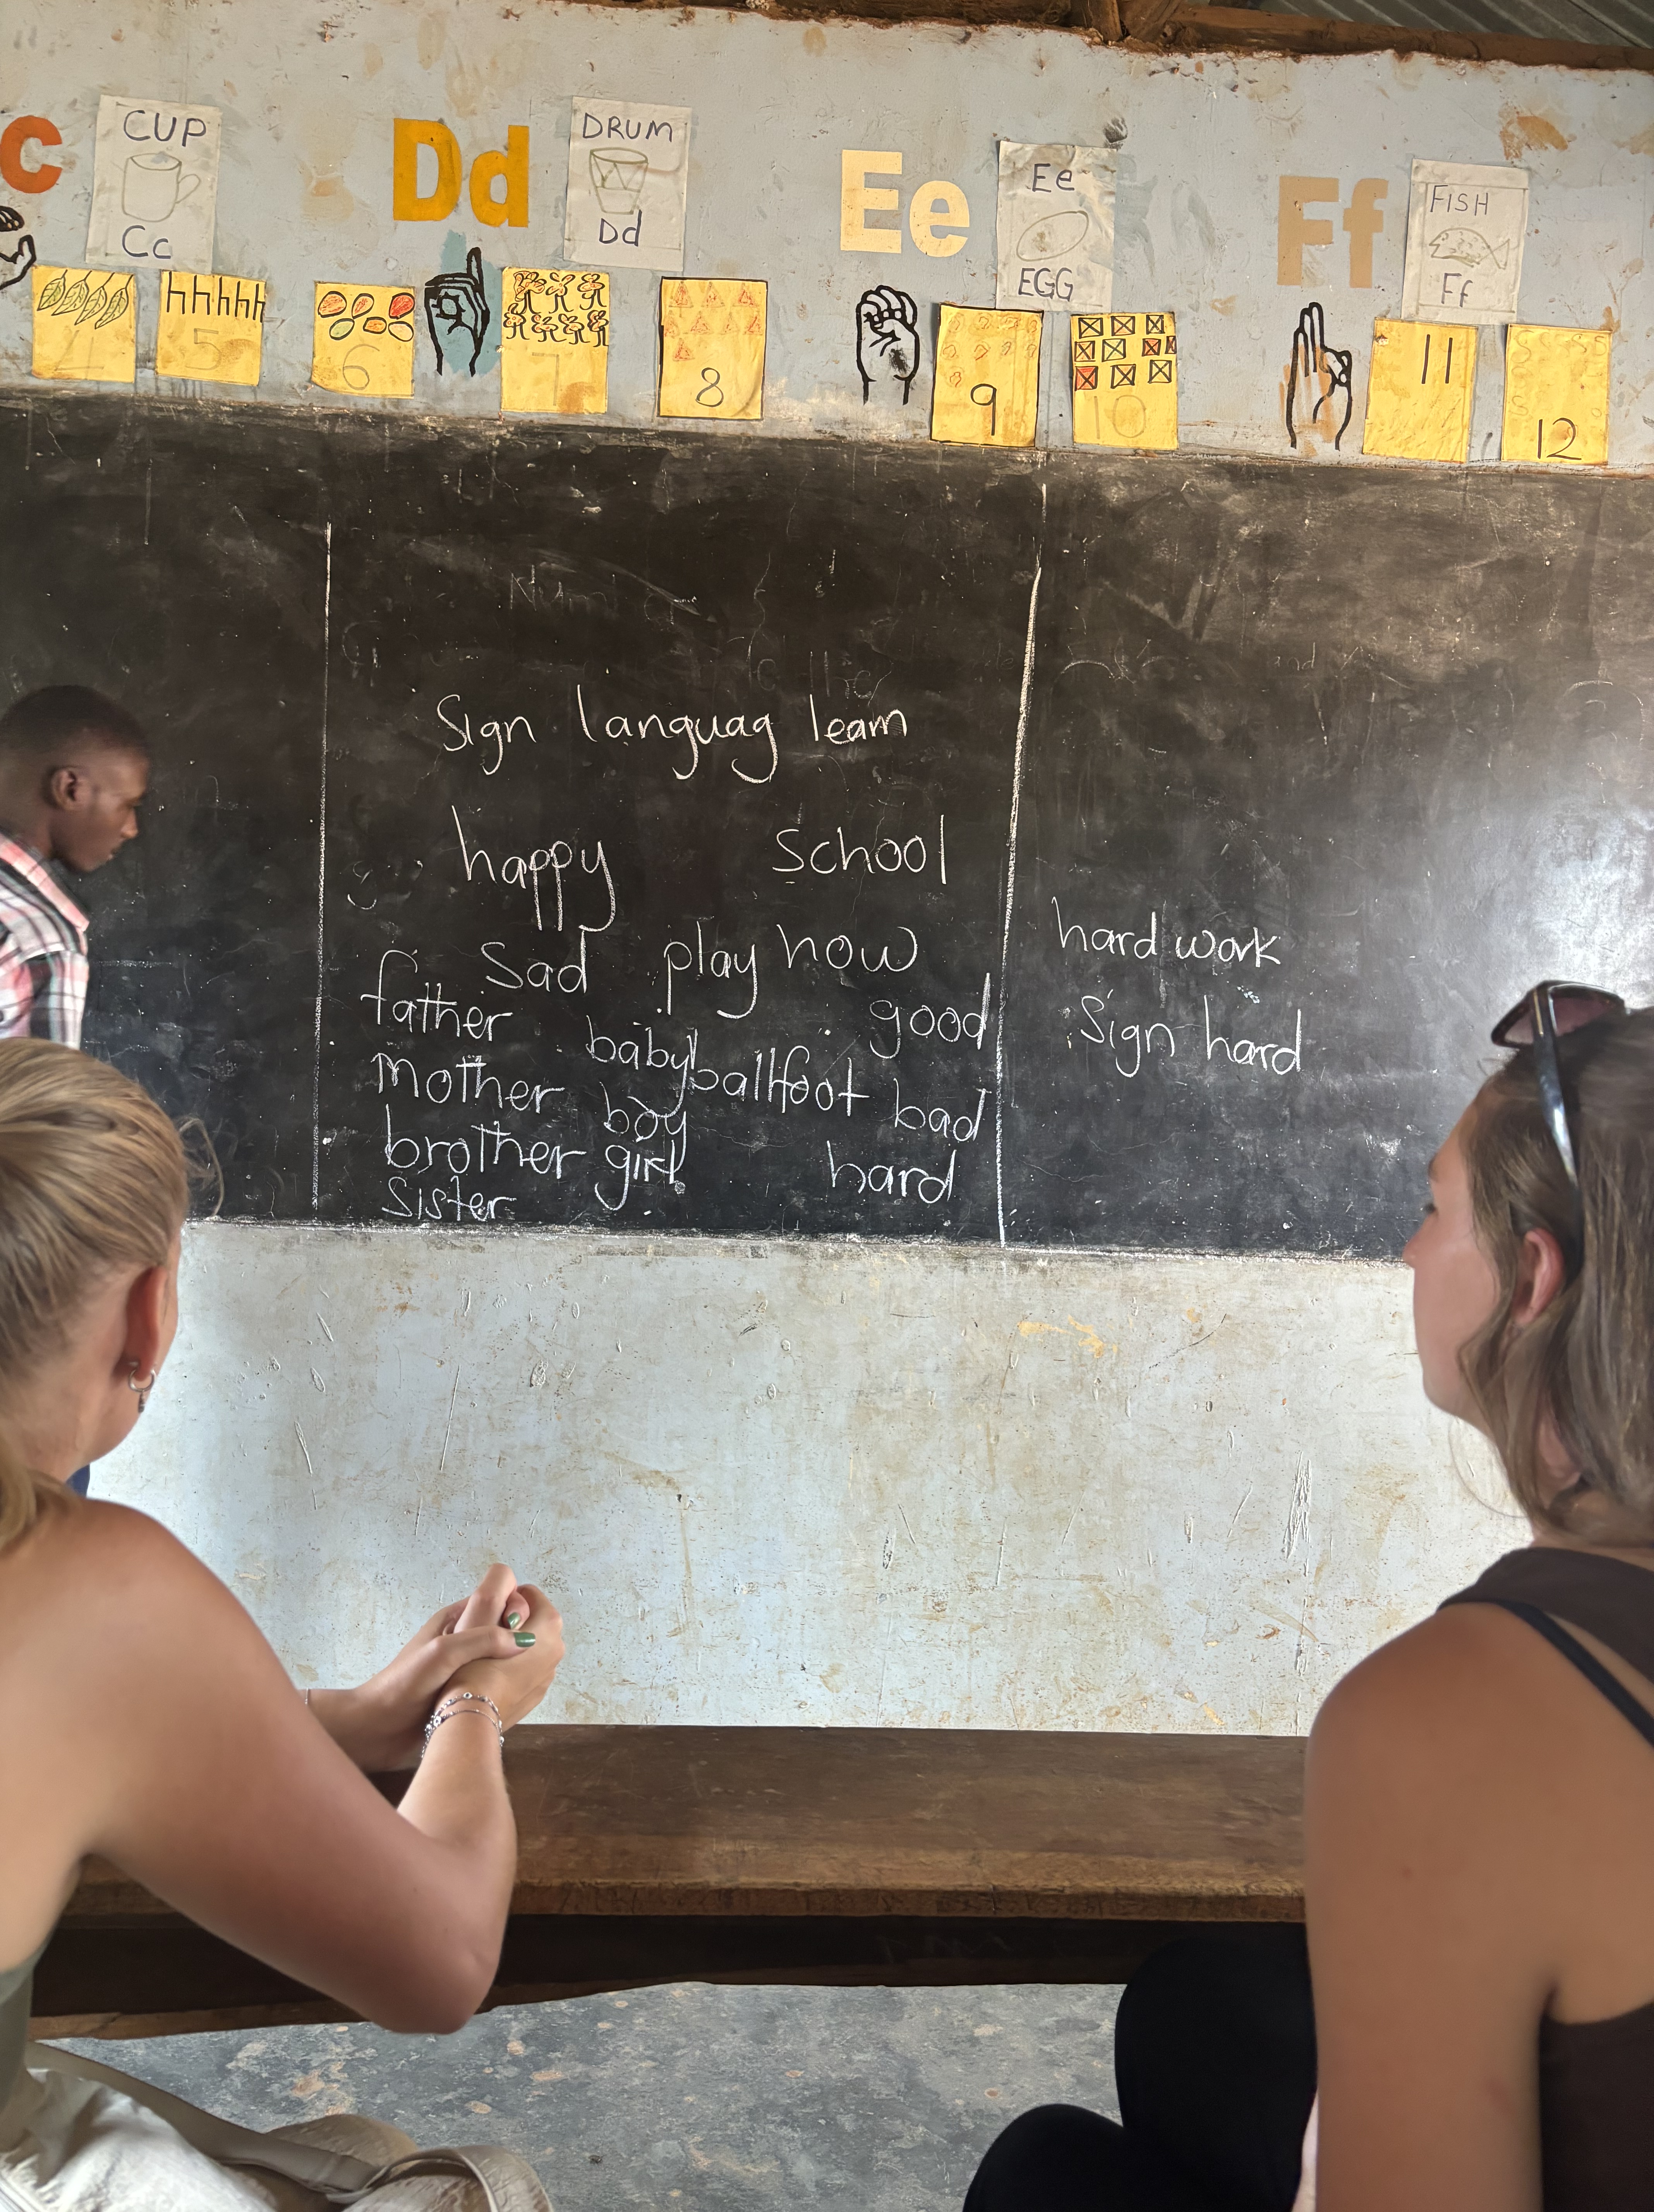 c
CUP
Cc
Dd
DRUM
Dd
Ee
Ee
EGG
Ff
FISH
Ff
5
6
7
8
9
10
11
12
Sign languag learn
happy school
Sad play now
father good
baby
mother ballfoot bad
boy
brother girl hard
Sister
hard work
Sign hard